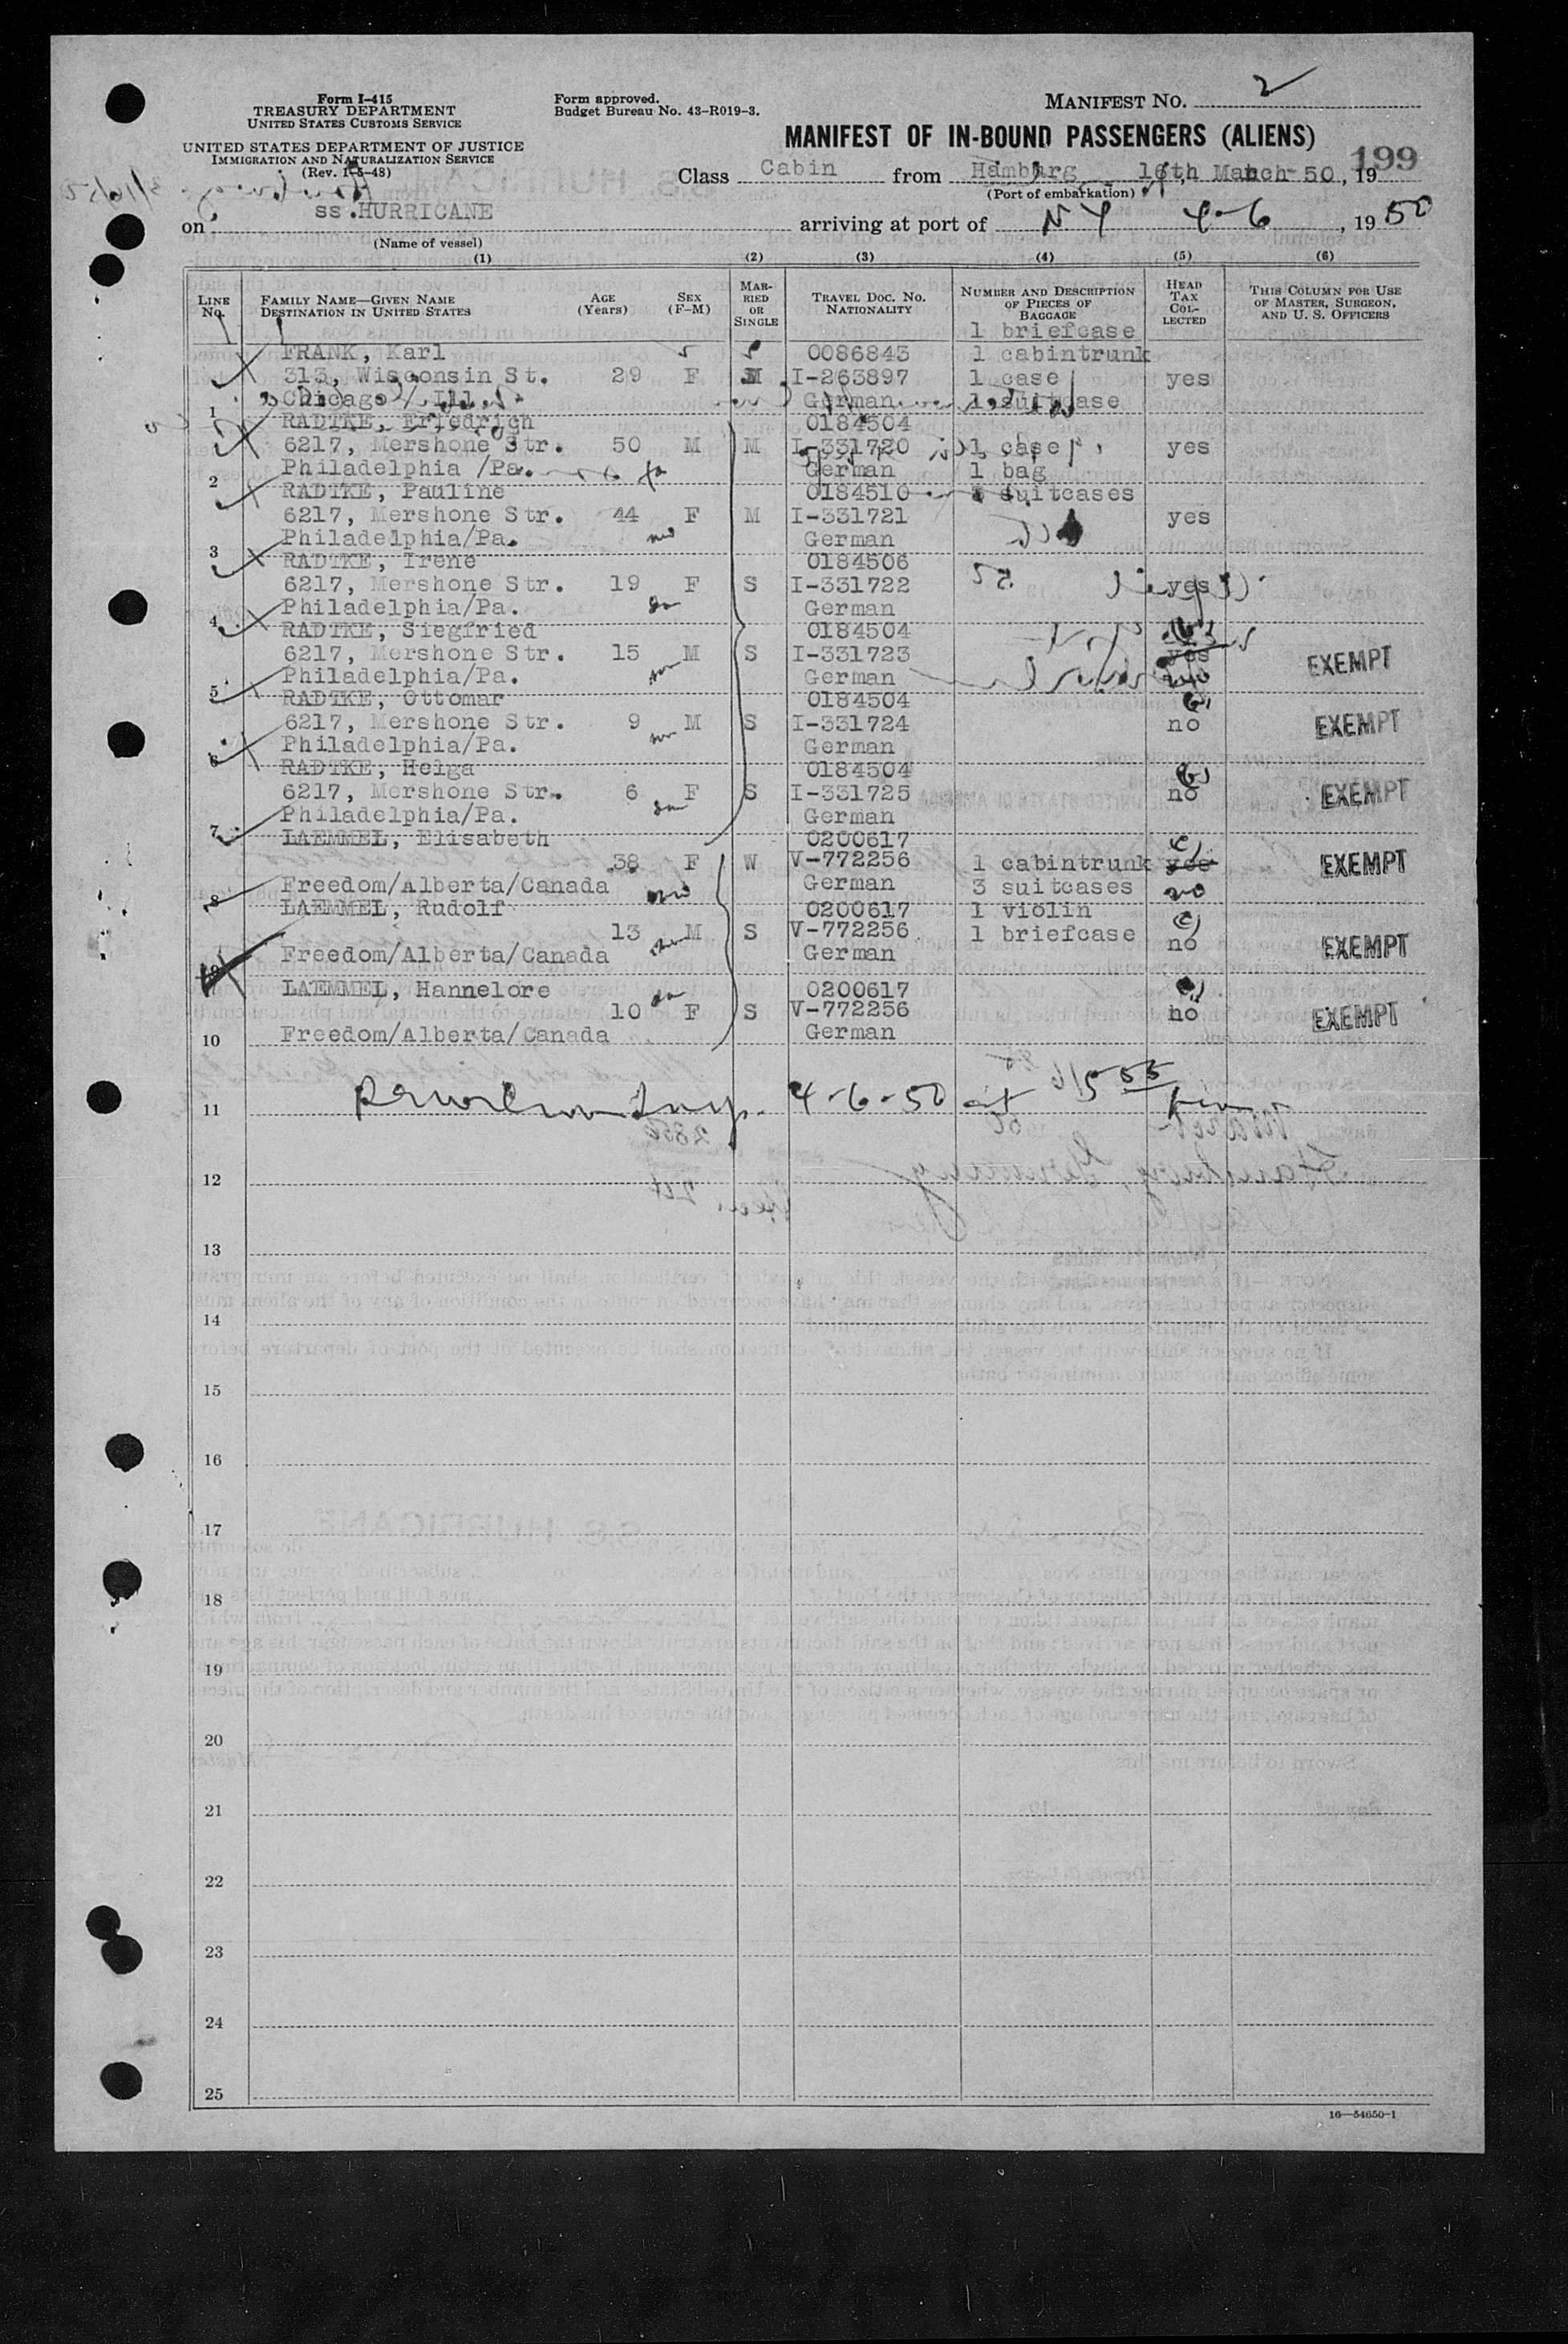 Form I-415
TREASURY DEPARTMENT
UNITED STATES CUSTOMS SERVICE
UNITED STATES DEPARTMENT OF JUSTICE
IMMIGRATION AND NATURALIZATION SERVICE
(Rev. 1-5-48)
Form approved.
Budget Bureau No. 43-R019-3.
MANIFEST NO. 2
MANIFEST OF IN-BOUND PASSENGERS (ALIENS)
199
Class Cabin from Hamburg, 16th March 50, 19
(Port of embarkation)
on ss.HURRICANE arriving at port of NY 4-6, 1950
(Name of vessel)
(1) (2) (3) (4) (5) (6)
LINE No. FAMILY NAME—GIVEN NAME DESTINATION IN UNITED STATES AGE (Years) SEX (F-M) MARRIED OR SINGLE TRAVEL DOC. NO. NATIONALITY NUMBER AND DESCRIPTION OF PIECES OF BAGGAGE HEAD TAX COLLECTED THIS COLUMN FOR USE OF MASTER, SURGEON, AND U. S. OFFICERS
1 briefcase
FRANK, Karl 0086843 1 cabintrunk
313, Wisconsin St. 29 F M I-263897 1 case yes
1 Chicago / Ill. German 1 suitcase
RADTKE, Friedrich 0184504
6217, Mershone Str. 50 M M I-331720 1 case yes
2 Philadelphia /Pa. German 1 bag
RADTKE, Pauline 0184510 suitcases
6217, Mershone Str. 44 F M I-331721 yes
3 Philadelphia/Pa. German
RADTKE, Irene 0184506
6217, Mershone Str. 19 F S I-331722 yes
4 Philadelphia/Pa. German
RADTKE, Siegfried 0184504
6217, Mershone Str. 15 M S I-331723 yes EXEMPT
5 Philadelphia/Pa. German no
RADTKE, Ottomar 0184504
6217, Mershone Str. 9 M S I-331724 no EXEMPT
6 Philadelphia/Pa. German
RADTKE, Helga 0184504
6217, Mershone Str. 6 F S I-331725 no EXEMPT
7 Philadelphia/Pa. German
LAEMMEL, Elisabeth 0200617
38 F W V-772256 1 cabintrunk yes EXEMPT
8 Freedom/Alberta/Canada German 3 suitcases no
LAEMMEL, Rudolf 0200617 1 violin
13 M S V-772256 1 briefcase no EXEMPT
9 Freedom/Alberta/Canada German
LAEMMEL, Hannelore 0200617
10 F S V-772256 no EXEMPT
10 Freedom/Alberta/Canada German
11 4-6-50 at
12
13
14
15
16
17
18
19
20
21
22
23
24
25
16—54650-1